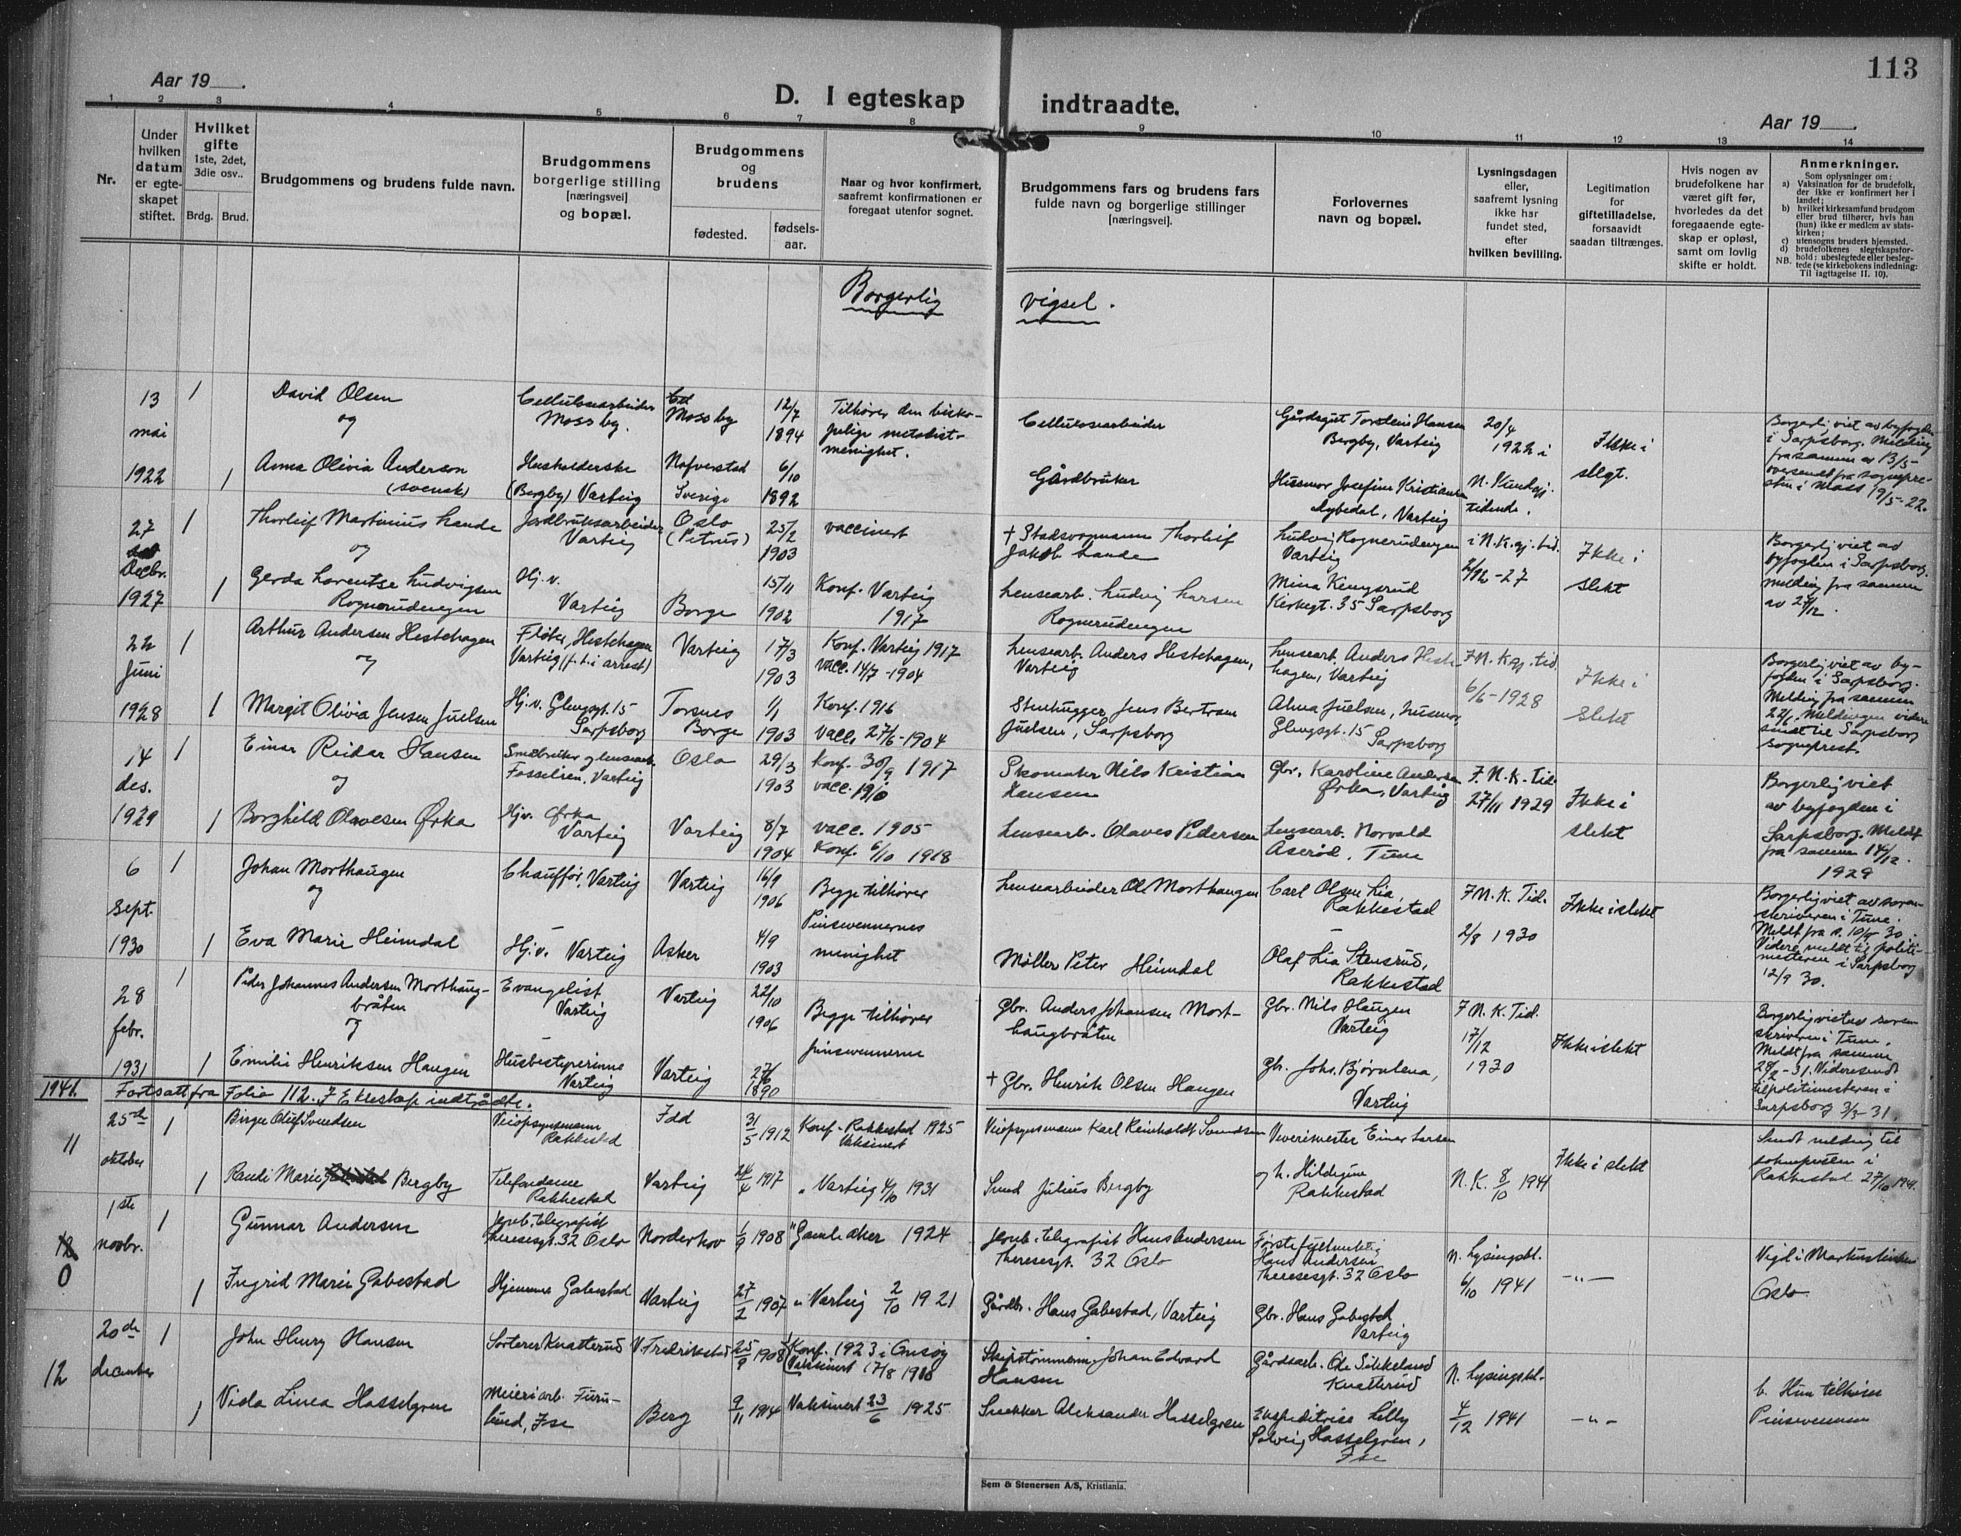 113
Aar 19
D. I egteskap indtraadte.
Aar 19
1 2 3 4 5 6 7 8 9 10 11 12 13 14
Nr.
Under hvilken datum er egte-skapet stiftet.
Hvilket gifte 1ste, 2det, 3die osv..
Brdg. Brud.
Brudgommens og brudens fulde navn.
Brudgommens borgerlige stilling [næringsvei] og bopæl.
Brudgommens og brudens
fødested. fødsels-aar.
Naar og hvor konfirmert, saafremt konfirmationen er foregaat utenfor sognet.
Brudgommens fars og brudens fars fulde navn og borgerlige stillinger [næringsvei].
Forlovernes navn og bopæl.
Lysningsdagen eller, saafremt lysning ikke har fundet sted, efter hvilken bevilling.
Legitimation for giftetilladelse, forsaavidt saadan tiltrænges.
Hvis nogen av brudefolkene har været gift før, hvorledes da det foregaaende egte-skap er opløst, samt om lovlig skifte er holdt.
Anmerkninger.
Som oplysninger om:
a) Vaksination for de brudefolk, der ikke er konfirmert her i landet;
b) hvilket kirkesamfund brudgom eller brud tilhører, hvis han (hun) ikke er medlem av stats-kirken;
c) utensogns bruders hjemsted.
d) brudefolkenes slegtskapsfor-hold: ubeslegtede eller besleg-tede (se kirkebokens indledning: Til iagttagelse II. 10).
NB.
Borgerlig vigsel.
13 mai 1922
1
David Olsen
og
Cellulosearbeider Mossby.
Mossby
12/7 1894
Tilhører den bisko-pelige metodist-menighet.
Cellulosearbeider
Gårdsgut Torstein Hansen Bergby, Varteig
20/4 1922 i N. Kundgj. tidende.
Ikke i slegt.
Borgerlig viet av byfogden i Sarpsborg. Melding fra samme av 13/5 - oversendt fra sognepre-sten i Moss 19/5-22.
1
Anna Olivia Anderson (svensk)
Husholderske (Bergby) Varteig
Nafverstad Sverige
6/10 1892
Gårdbruker
Husmor Josefine Kristiansen Nybedal, Varteig
27 Decbr. 1927
1
Thorleif Martinius Lande
og
Jordbruksarbeider Varteig
Oslo (Petrus)
25/2 1903
vaccinert
+ Stadsvognmann Thorleif Jakob Lande
Ludvig Rognerudengen Varteig
i N. K. gj. tid. 2/12-27
Ikke i slekt
Borgerlig viet av byfogden i Sarpsborg. melding fra samme av 27/12.
1
Gerda Lorentse Ludvigsen Rognerudengen
Hj.v. Varteig
Borge
15/11 1902
Konf. Varteig 1917
Lensearb. Ludvig Larsen Rognerudengen
Mina Kengsrud Kirkegt. 35 Sarpsborg
22 Juni 1928
1
Arthur Andersen Hestehagen
og
Fløter, Hestehagen Varteig (f. t. i arrest)
Varteig
17/3 1903
Konf. Varteig 1917 vacc. 14/7-1904
Lensearb. Anders Hestehagen, Varteig
Lensearb. Anders Heste-hagen, Varteig
I N. Kgj. tid. 6/6-1928
Ikke i slekt
Borgerlig viet av by-fogden i Sarpsborg. Melding fra samme 22/6. Meldingen videre sendt til Sarpsborg sogneprest.
1
Margit Olivia Jensen Juelsen
Hj.v. Glengsgt. 15 Sarpsborg
Torsnes Borge
1/1 1903
Konf. 1916 vacc. 27/6-1904
Stenhugger Jens Bertram Juelsen, Sarpsborg
Alma Juelsen, husmor Glengsgt. 15 Sarpsborg
14 des. 1929
1
Einar Reidar Hansen
og
Småbruker og lensearb. Fosselien, Varteig
Oslo
29/3 1903
Konf. 30/9 1917 vacc. 1910
Skomaker Nils Kristian Hansen
Gbr. Karoline Andersen Ørka, Varteig
I. N. K. Tid. 27/11 1929
Ikke i slekt
Borgerlig viet av byfogden i Sarpsborg. Meldt fra samme 14/12. 1929
1
Borghild Olavesen Ørka
Hjv. Ørka Varteig
Varteig
8/7 1904
vacc. 1905 Konf. 6/10 1918
Lensearb. Olaves Pedersen
Lensearb. Norvald Aserød, Tune
6 Sept. 1930
1
Johan Morthaugen
og
Chauffør, Varteig
Varteig
16/9 1906
Begge tilhører Pinsevennernes menighet
Lensearbeider Ole Morthaugen
Carl Olsen Lia, Rakkestad
I N. K. Tid. 2/8 1930
Ikke i slekt
Borgerlig viet av soren-skriveren i Tune. Meldt fra s. 10/9 30. Videre meldt til politi-mesteren i Sarpsborg 12/9 30.
1
Eva Marie Heimdal
Hj.v. Varteig
Asker
4/9 1903
Møller Peter Heimdal
Olaf Lia Stensrud, Rakkestad
28 febr. 1931
1
Peder Johannes Andersen Morthaug-bråten
og
Evangelist Varteig
Varteig
22/10 1906
Begge tilhører pinsevennerne
Gbr. Anders Johansen Mort-haugbråten
Gbr. Nils Haugen Varteig
I N. K. Tid. 17/12 1930
Ikke i slekt
Borgerlig viet av soren-skriveren i Tune. Meldt fra samme 28/2-31. Videresendt til politimesteren i Sarpsborg 3/3-31.
1
Emilie Henriksen Haugen
Husbestyrerinne Varteig
Varteig
27/6 1890
+ Gbr. Henrik Olsen Haugen
Gbr. Johs. Bjørnlena, Varteig
1941. Fortsatt fra Folio 112. I Ekteskap indtrådte.
11
25de oktober
1
Birger Oluf Svendsen
Veiopsynsmann Rakkestad
Idd
31/5 1912
Konf. Rakkestad 1925 Vaksinert
Veiopsynsmann Karl Reinholdt Svendsen
Veverimester Einar Larsen
N. K. 8/10 1941
Ikke i slekt
Sendt melding til soknepresten i Rakkestad 27/10 1941.
1
Randi Marie Bergby
Telefondame Rakkestad
Varteig
24/4 1917
" Varteig 4/10 1931
Smed Julius Bergby
og h. Hildegine Rakkestad
10
1ste novbr.
1
Gunnar Andersen
Jernb. telegrafist Theresesgt. 32 Oslo
Norderhov
1/9 1908
" Gamle Aker 1924
Jernb. telegrafist Hans Andersen Theresesgt. 32 Oslo
Hans Andersen Theresesgt. 32 Oslo
N. Lysingsbl. 6/10 1941
—"—
Oslo
1
Ingrid Marie Gabestad
Hjemme Gabestad
Varteig
27/2 1907
" Varteig 2/10 1921
Gårdbr. Hans Gabestad, Varteig
Gbr. Hans Gabestad Varteig
12
20de december
1
John Henry Hansen
Sorterer Knatterud
V. Fredrikstad
25/9 1908
Konf. 1923 i Onsøy Vaksinert 17/8
Skipstømmerm. Johan Edvard Hansen
Gårdsarb. Ole Sikkeland Knatterud
N. Lysingsbl. 4/12 1941
—"—
b. Hun tilhører Pinsevennene
1
Viola Linea Hasselgren
Meieriarb. Furu-lund, Ise
Berg
9/11 1914
Vaksinert 23/6 1925
Snekker Aleksander Hasselgren
Ekspeditrise Lilly Solveig Hasselgren, Ise
Sem & Stenersen A/S, Kristiania.